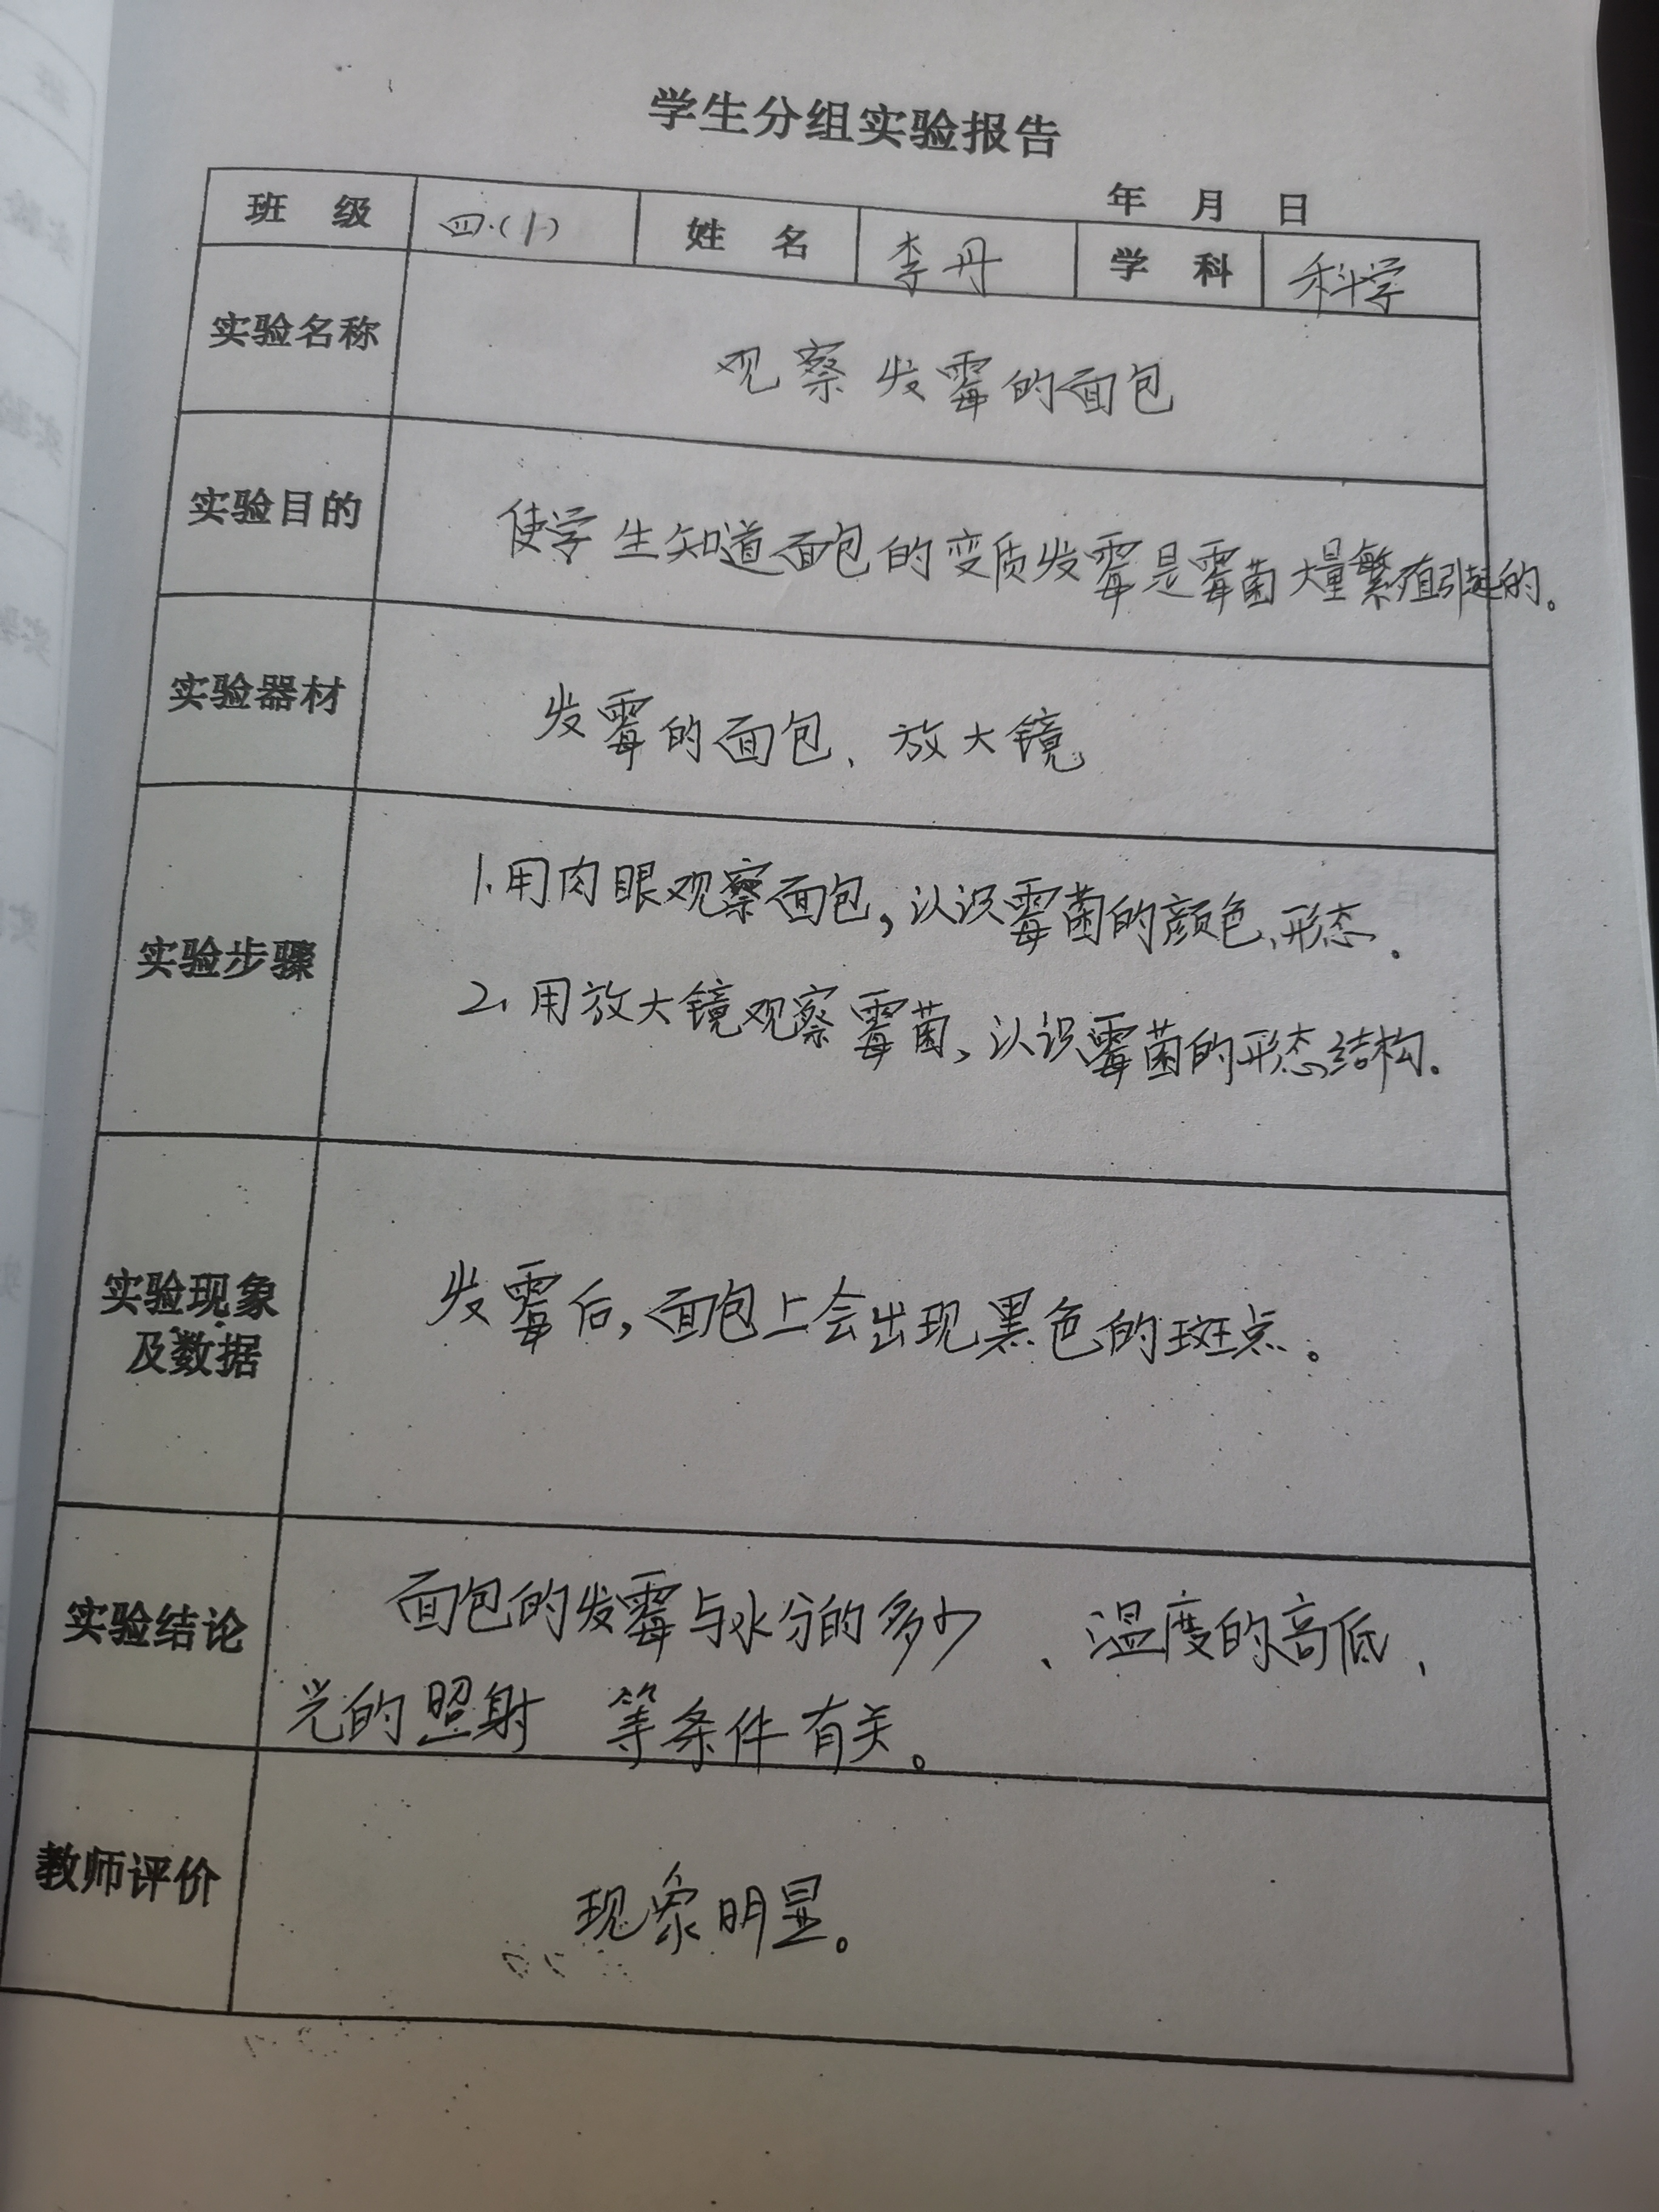 学生分组实验报告
年 月 日
班 级 四.(1) 姓 名 李丹 学 科 科学
实验名称 观察发霉的面包
实验目的 使学生知道面包的变质发霉是霉菌大量繁殖引起的。
实验器材 发霉的面包、放大镜
实验步骤
1.用肉眼观察面包,认识霉菌的颜色、形态.
2、用放大镜观察霉菌、认识霉菌的形态结构。
实验现象
及数据
发霉后,面包上会出现黑色的斑点。
实验结论
面包的发霉与水分的多少、温度的高低、
光的照射 等条件有关。
教师评价 现象明显。